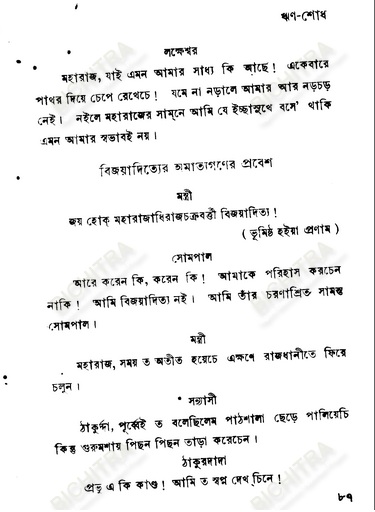 ঋণ-শোধ
লক্ষেশ্বর
মহারাজ, যাই এমন আমার সাধ্য কি আছে! একেবারে
পাথর দিয়ে চেপে রেখেচে! যমে না নড়ালে আমার আর নড়চড়
নেই। নইলে মহারাজের সামনে আমি যে ইচ্ছাসুখে বসে' থাকি
এমন আমার স্বভাবই নয়।
বিজয়াদিত্যের অমাত্যগণের প্রবেশ
মন্ত্রী
জয় হোক্ মহারাজাধিরাজচক্রবর্ত্তী বিজয়াদিত্য!
( ভূমিষ্ঠ হইয়া প্রণাম )
সোমপাল
আরে করেন কি, করেন কি! আমাকে পরিহাস করচেন
নাকি! আমি বিজয়াদিত্য নই। আমি তাঁর চরণাশ্রিত সামন্ত
সোমপাল।
মন্ত্রী
মহারাজ, সময় ত অতীত হয়েচে এক্ষণে রাজধানীতে ফিরে
চলুন।
সন্ন্যাসী
ঠাকুর্দ্দা, পূর্ব্বেই ত বলেছিলেম পাঠশালা ছেড়ে পালিয়েচি
কিন্তু গুরুমশায় পিছন পিছন তাড়া করেচেন।
ঠাকুরদাদা
প্রভু এ কি কাণ্ড! আমি ত স্বপ্ন দেখ্‌চিনে!
৮৭
BICHITRA
BICHITRA
BICHITRA
BICHITRA
BICHITRA
BICHITRA